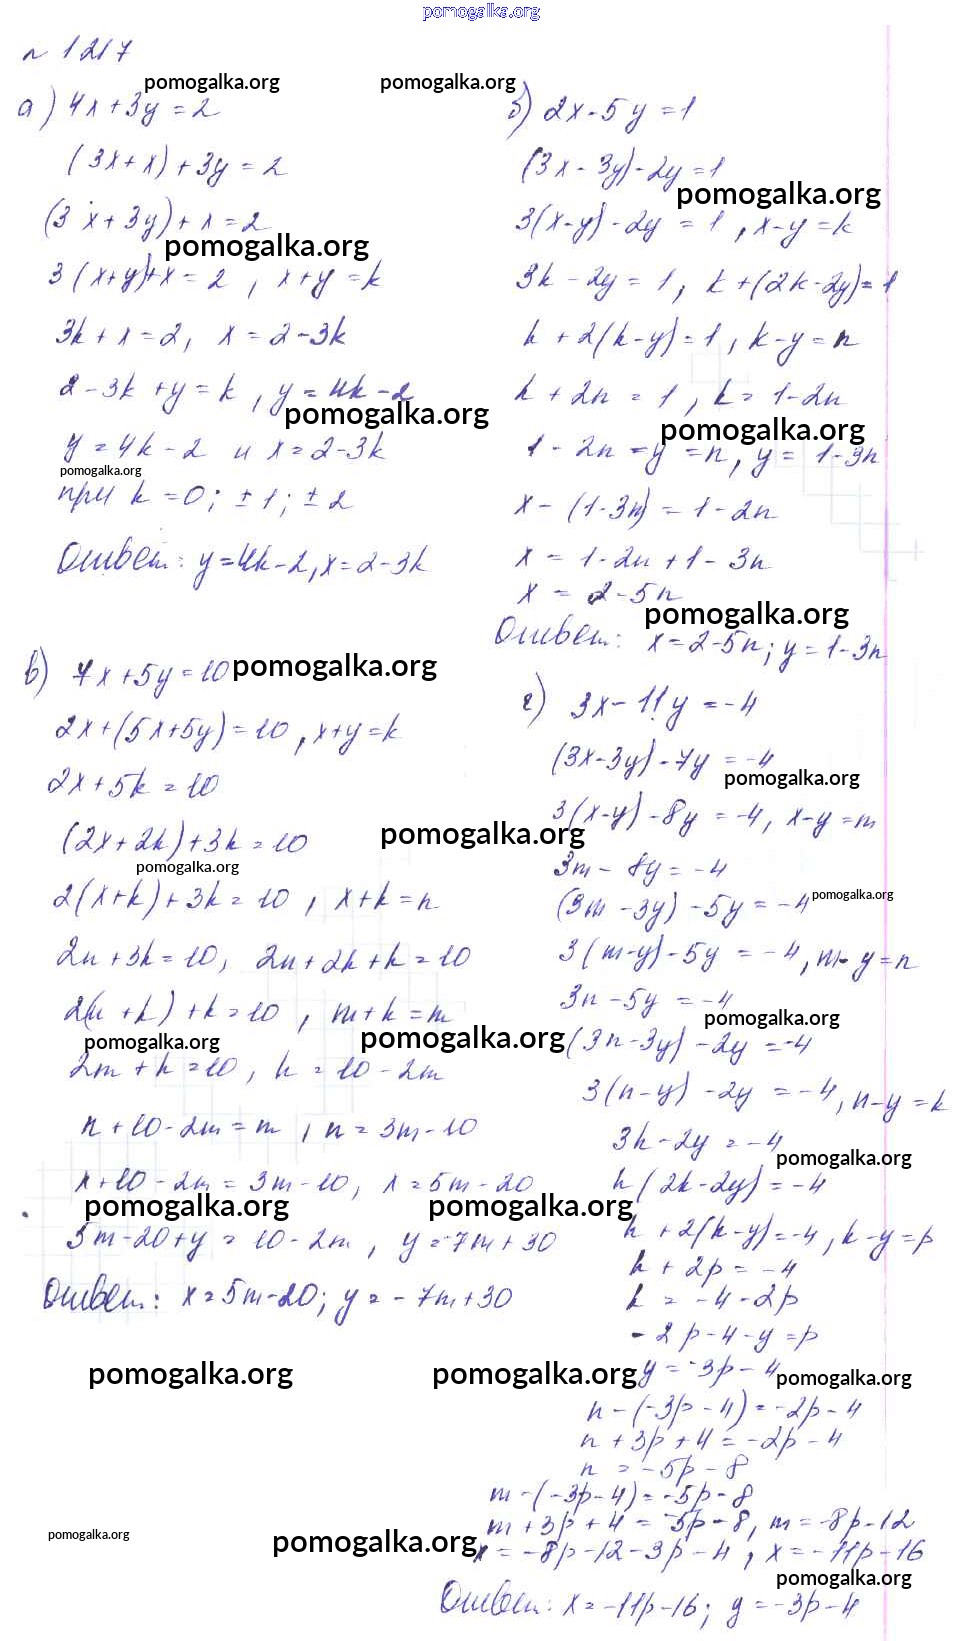 pomogalka.org
n 1217
pomogalka.org
pomogalka.org
а) 4x+3y=2
(3x+x)+3y=2
(3x+3y)+x=2
pomogalka.org
3(x+y)+x=2, x+y=k
3k+x=2, x=2-3k
2-3k+y=k, y=4k-2
pomogalka.org
y=4k-2 и x=2-3k
pomogalka.org
при k=0; ±1; ±2
Ответ: y=4k-2, x=2-3k
б) 2x-5y=1
(3x-3y)-2y=1
pomogalka.org
3(x-y)-2y=1, x-y=k
3k-2y=1, k+(2k-2y)=1
k+2(k-y)=1, k-y=n
k+2n=1, k=1-2n
pomogalka.org
1-2n-y=n, y=1-3n
x-(1-3n)=1-2n
x=1-2n+1-3n
x=2-5n
pomogalka.org
Ответ: x=2-5n; y=1-3n
в) 7x+5y=10
pomogalka.org
2x+(5x+5y)=10, x+y=k
2x+5k=10
(2x+2k)+3k=10
pomogalka.org
pomogalka.org
2(x+k)+3k=10, x+k=n
2n+3k=10, 2n+2k+k=10
2(n+k)+k=10, n+k=m
pomogalka.org
pomogalka.org
2m+k=10, k=10-2m
n+10-2m=m, n=3m-10
x+10-2m=3m-10, x=5m-20
pomogalka.org
pomogalka.org
5m-20+y=10-2m, y=-7m+30
Ответ: x=5m-20; y=-7m+30
pomogalka.org
pomogalka.org
г) 3x-11y=-4
(3x-3y)-7y=-4
pomogalka.org
3(x-y)-8y=-4, x-y=m
3m-8y=-4
pomogalka.org
(3m-3y)-5y=-4
3(m-y)-5y=-4, m-y=n
3n-5y=-4
pomogalka.org
(3n-3y)-2y=-4
3(n-y)-2y=-4, n-y=k
3k-2y=-4
pomogalka.org
k(2k-2y)=-4
k+2(k-y)=-4, k-y=p
k+2p=-4
k=-4-2p
-2p-4-y=p
y=-3p-4
pomogalka.org
n-(-3p-4)=-2p-4
n+3p+4=-2p-4
n=-5p-8
m-(-3p-4)=-5p-8
m+3p+4=-5p-8, m=-8p-12
pomogalka.org
pomogalka.org
x=-8p-12-3p-4, x=-11p-16
pomogalka.org
Ответ: x=-11p-16; y=-3p-4